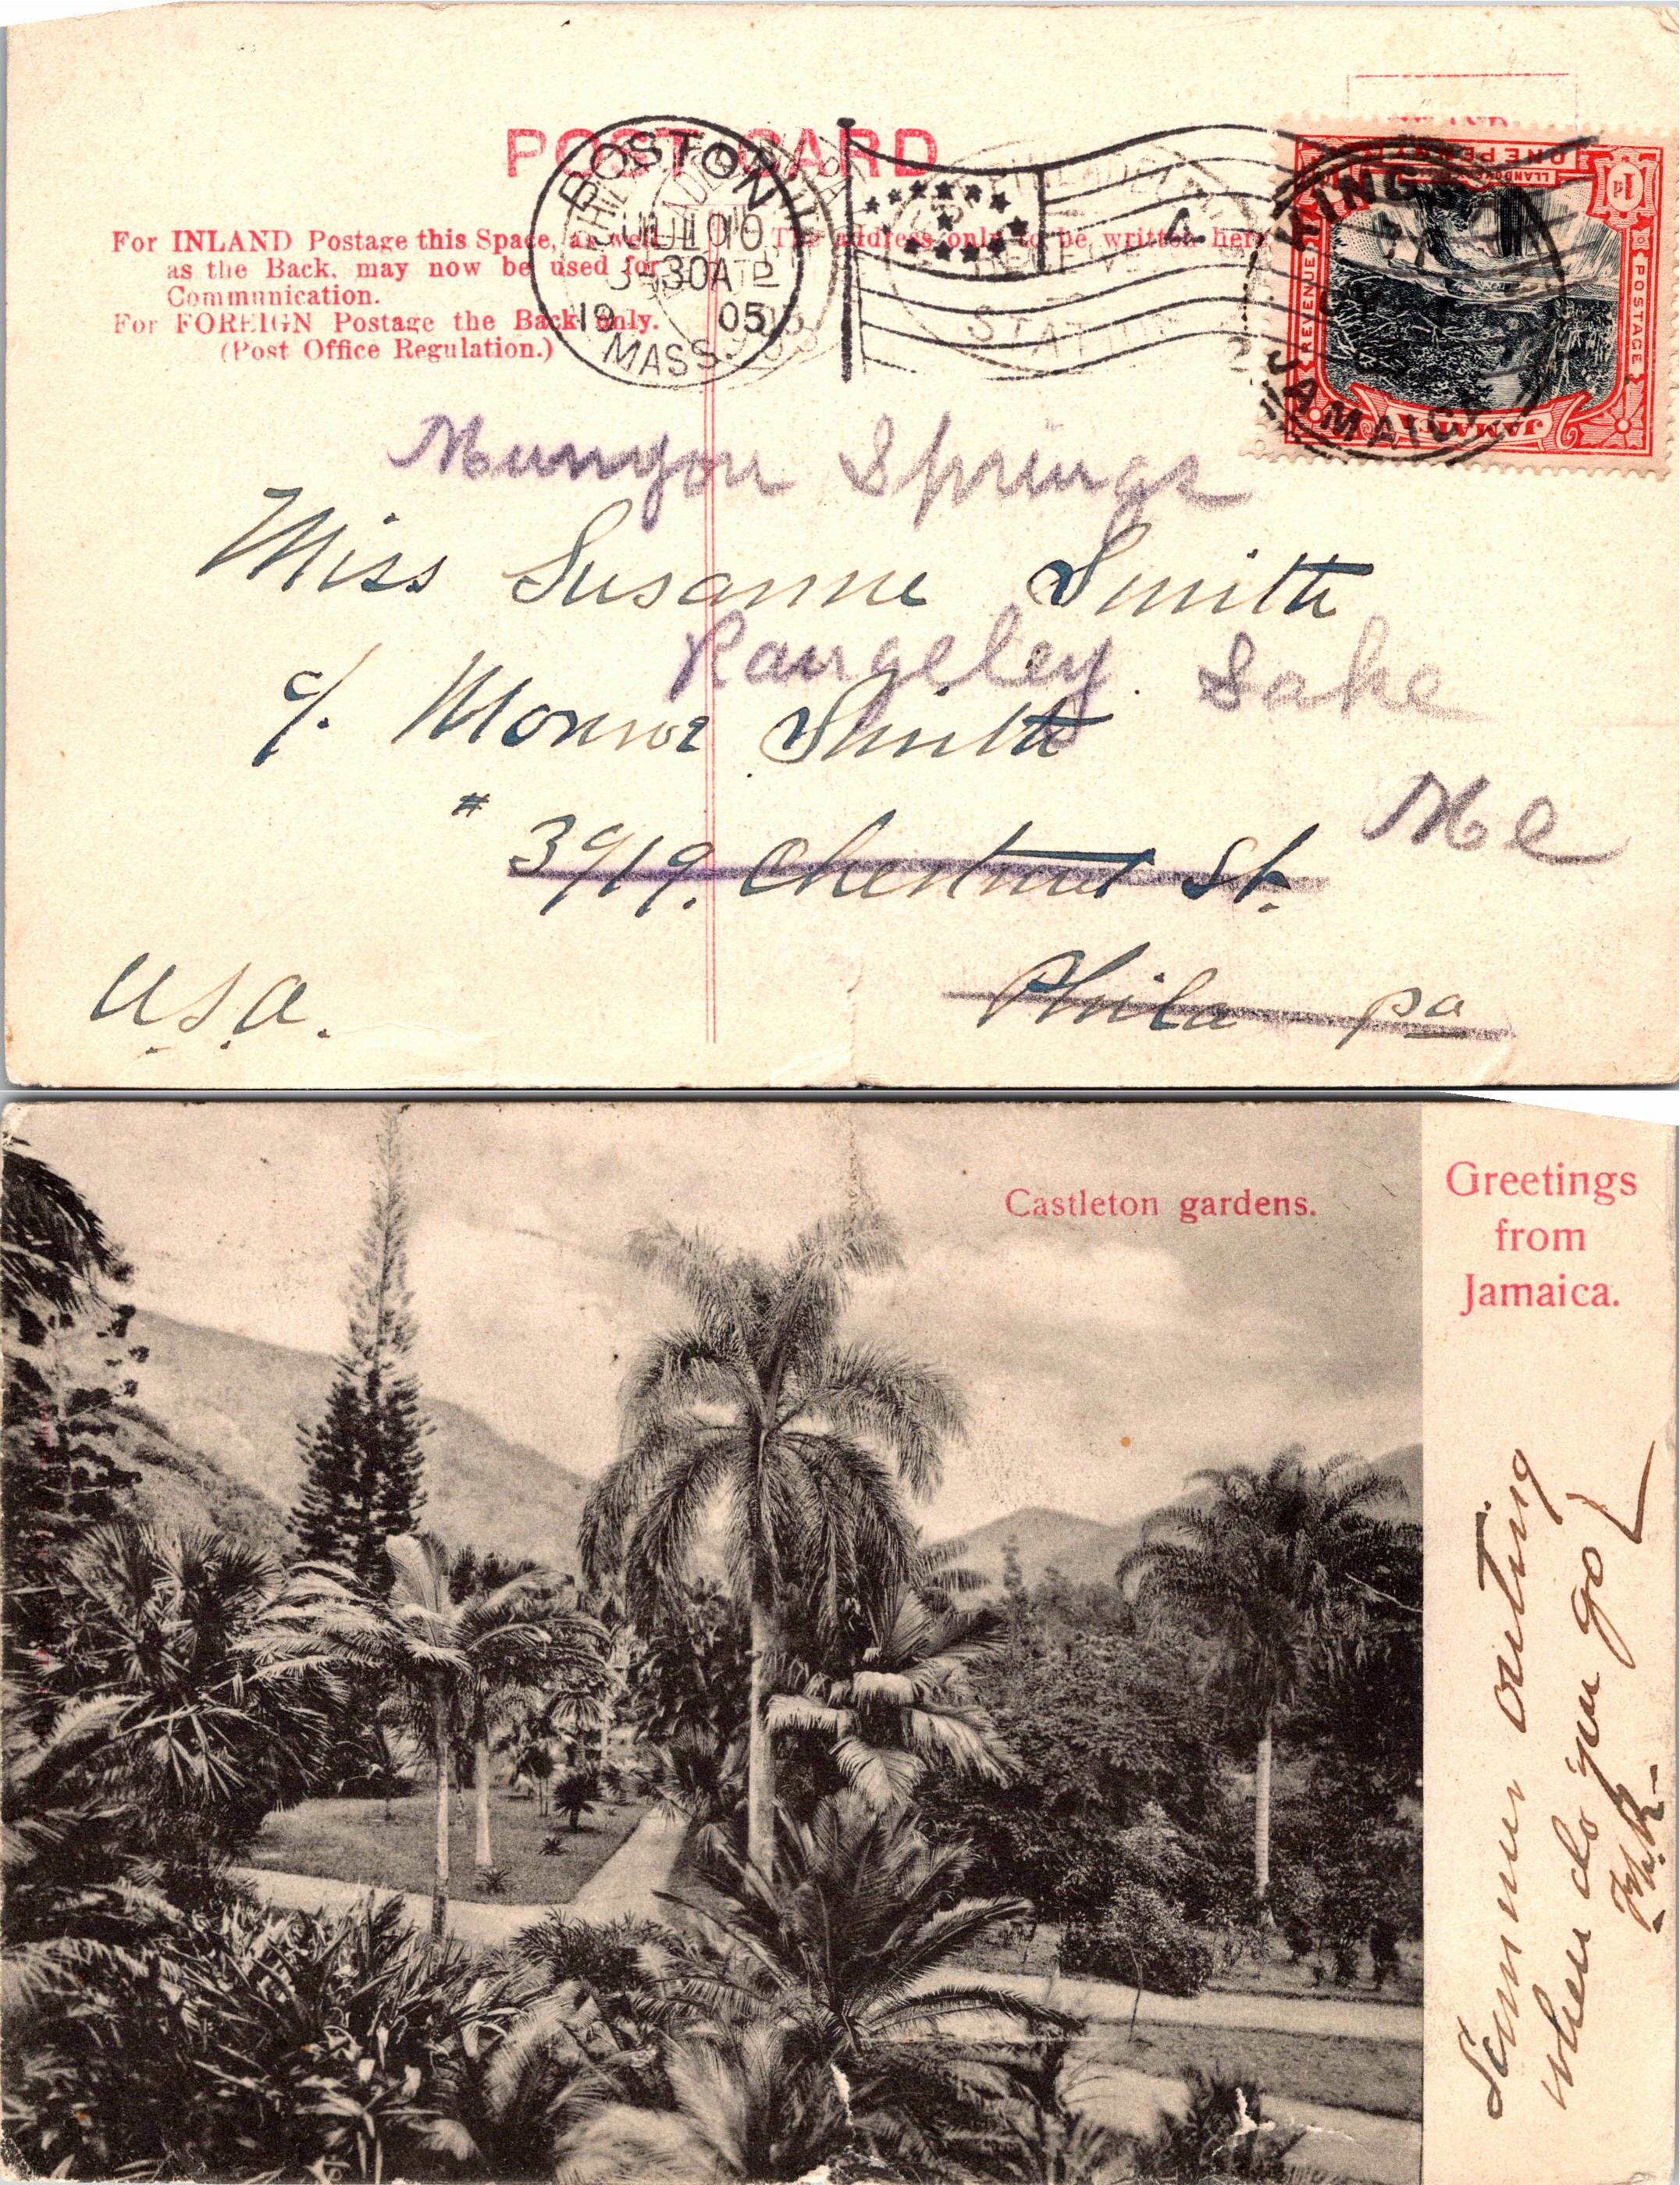 POST CARD
For INLAND Postage this Space, as well
as the Back, may now be used for
Communication.
For FOREIGN Postage the Back only.
(Post Office Regulation.)
The address only to be written here
BOSTON
JUL 10
3 30 A
1905
MASS.
4
RECEIVED
STATION
KINGS
JAMAICA
JAMAICA
POSTAGE
REVENUE
ONE PENNY
1d
Munyon Springs
Miss Susanne Smith
Rangeley Lake
c/. Monroe Smith
Me
# 3919. Chestnut St.
U.S.A.
Phila pa
Castleton gardens.
Greetings
from
Jamaica.
Summer outing
when do you go